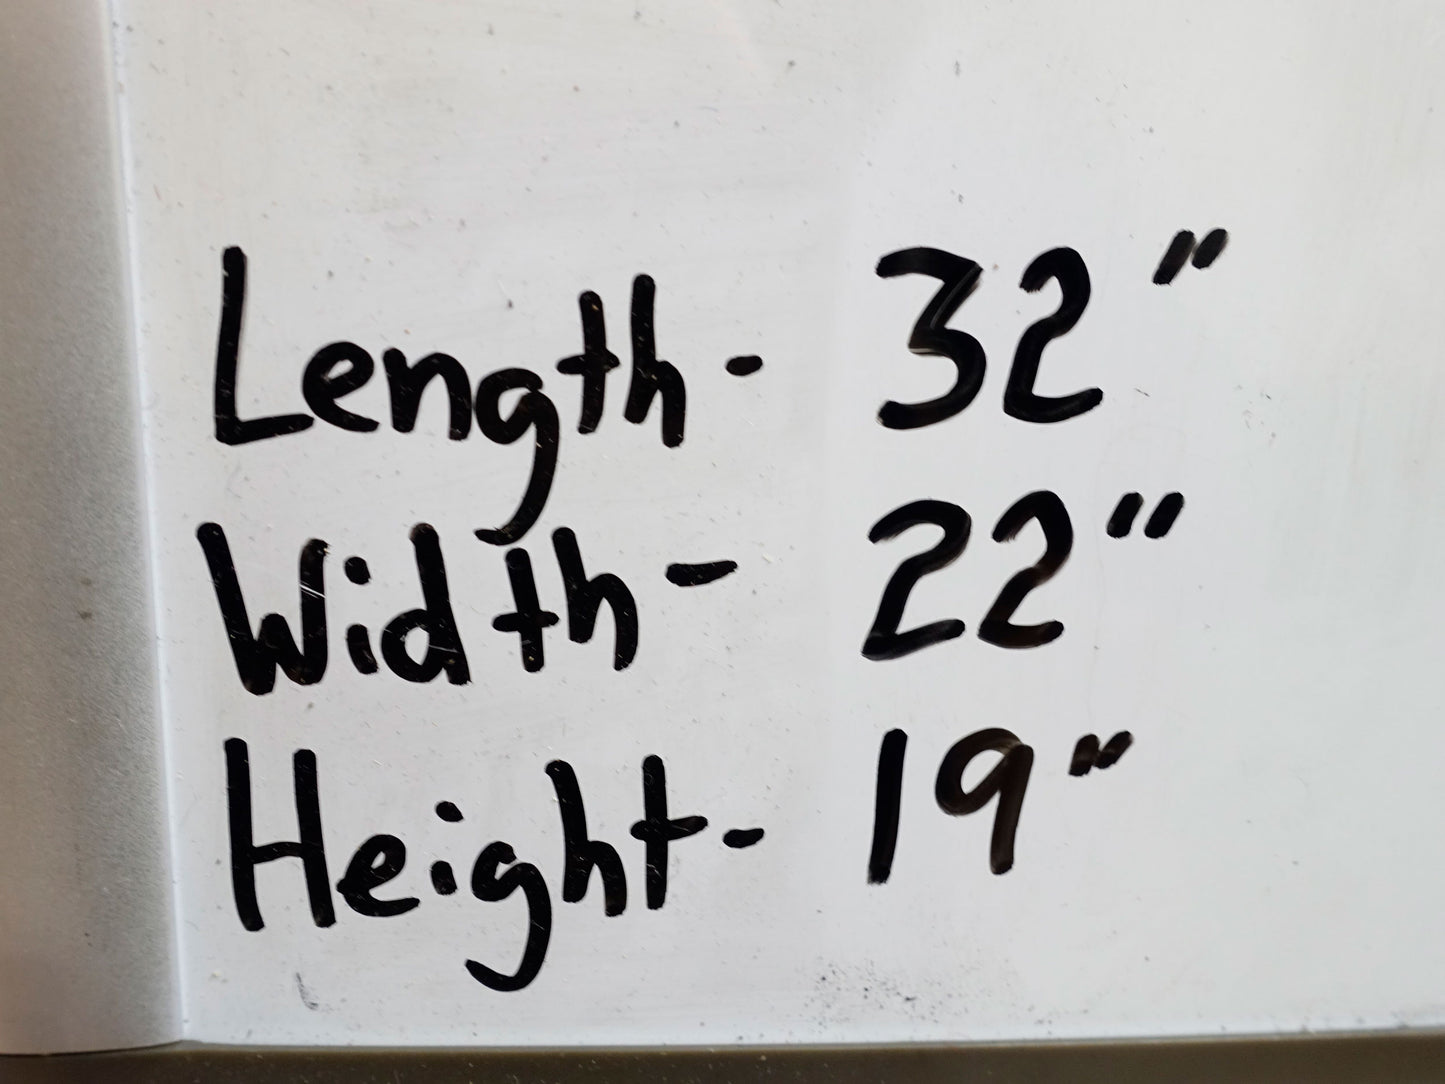 Length - 32"
Width - 22"
Height - 19"